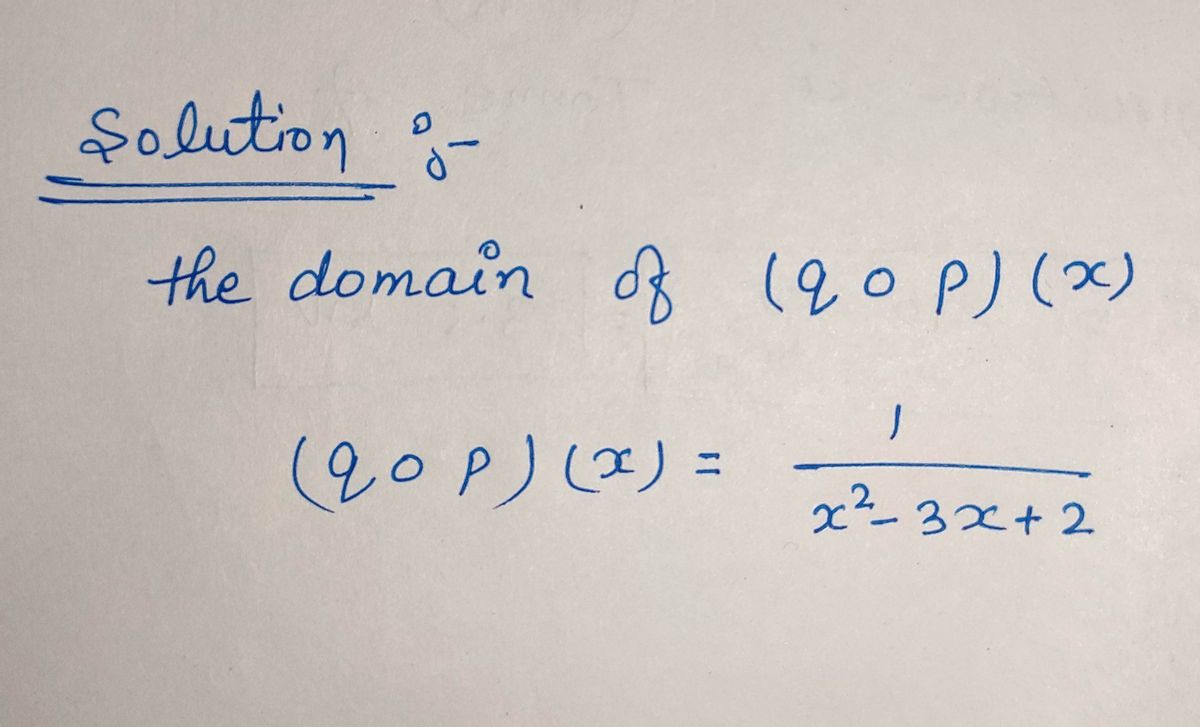 Solution :-
the domain of (q o p) (x)
(q o p) (x) = 1 / x² - 3x + 2